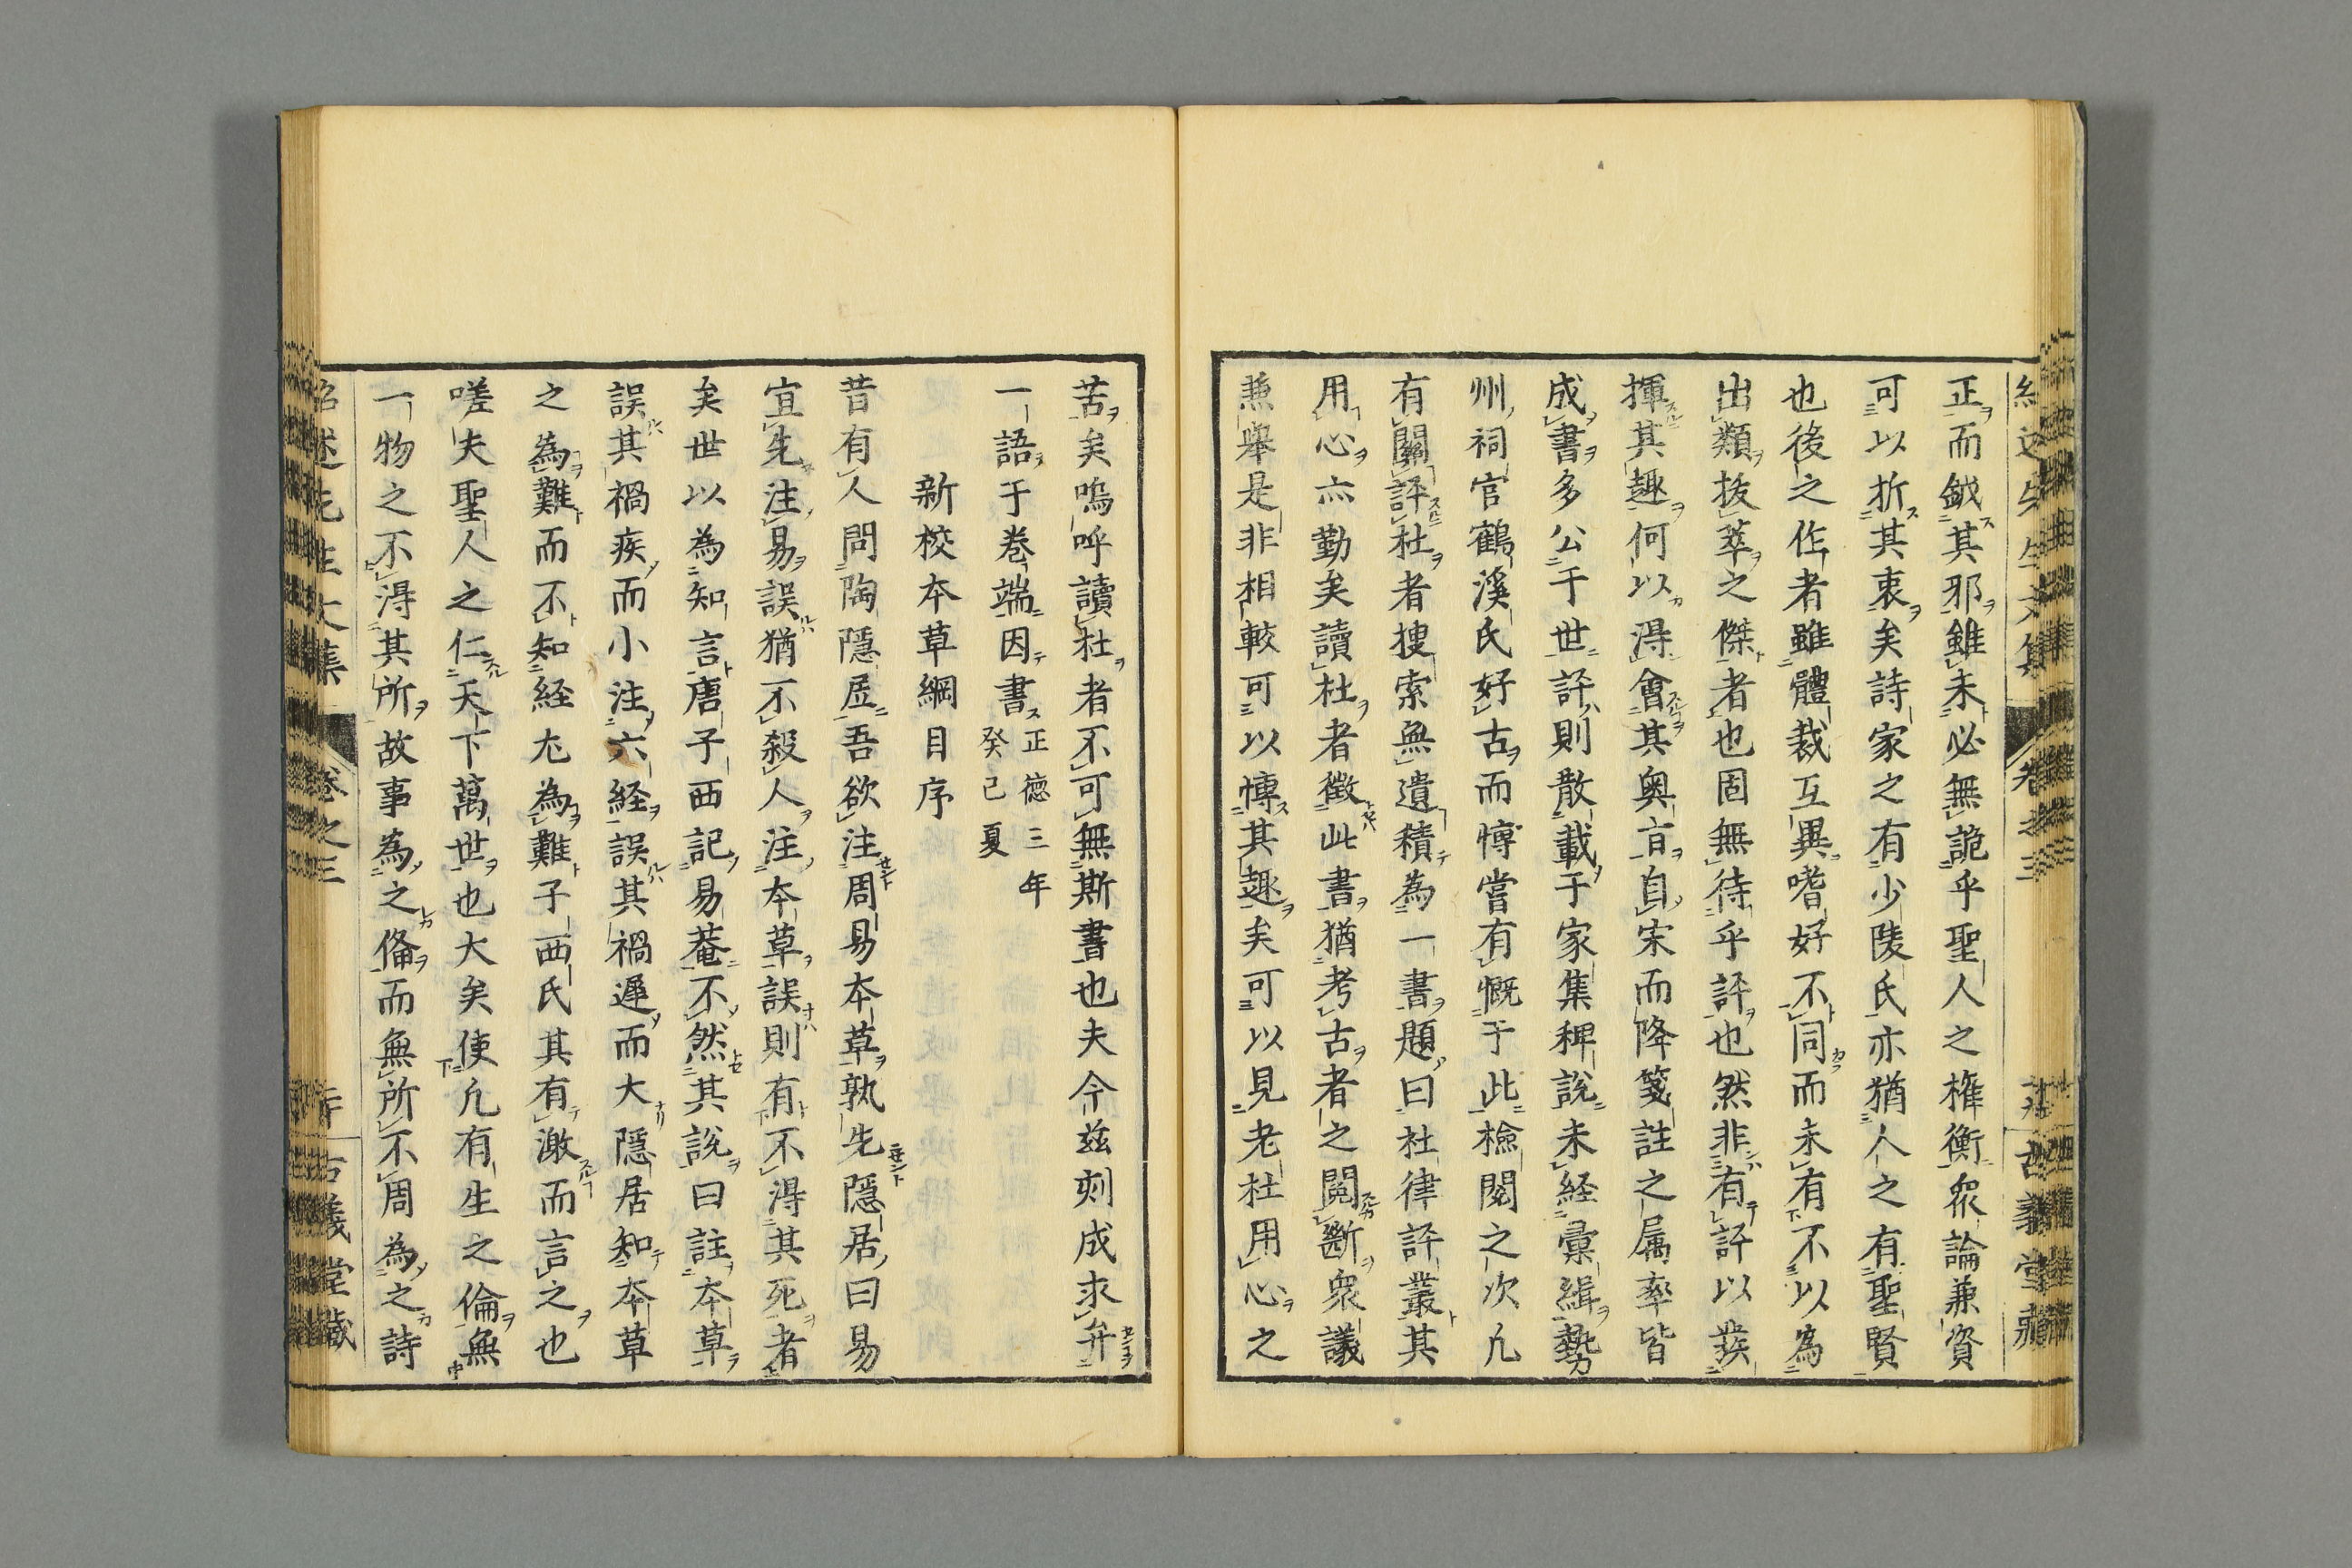 正而鉞其邪雖未必無詭乎聖人之權衡衆論兼資
可以折其衷矣詩家之有少陵氏亦猶人之有聖賢
也後之作者雖體裁互異嗜好不同而未有不以為
出類拔萃之傑者也固無待乎評也然非有評以發
揮其趣何以得會其奧旨自宋而降箋註之属率皆
成書多公于世評則散載于家集稗說未経彙緝勢
州祠官鶴溪氏好古而慱嘗有慨于此檢閱之次凢
有關評杜者搜索無遺積為一書題曰杜律評叢其
用心亦勤矣讀杜者徵此書猶考古者之閱斷衆議
兼舉是非相較可以慱其趣矣可以見老杜用心之
苦矣嗚呼讀杜者不可無斯書也夫今兹刻成求弁
一語于巻端因書正德三年癸己夏
新校本草綱目序
昔有人問陶隱居吾欲注周易本草孰先隱居曰易
宜先注易誤猶不殺人注本草誤則有不得其死者
矣世以為知言唐子西記易菴不然其說曰註本草
誤其禍疾而小注六経誤其禍遲而大隱居知本草
之為難而不知経尤為難子西氏其有激而言之也
嗟夫聖人之仁天下萬世也大矣使凢有生之倫無
一物之不得其所故事為之俻而無所不周為之詩
紹述先生文集 卷之三 古義堂藏